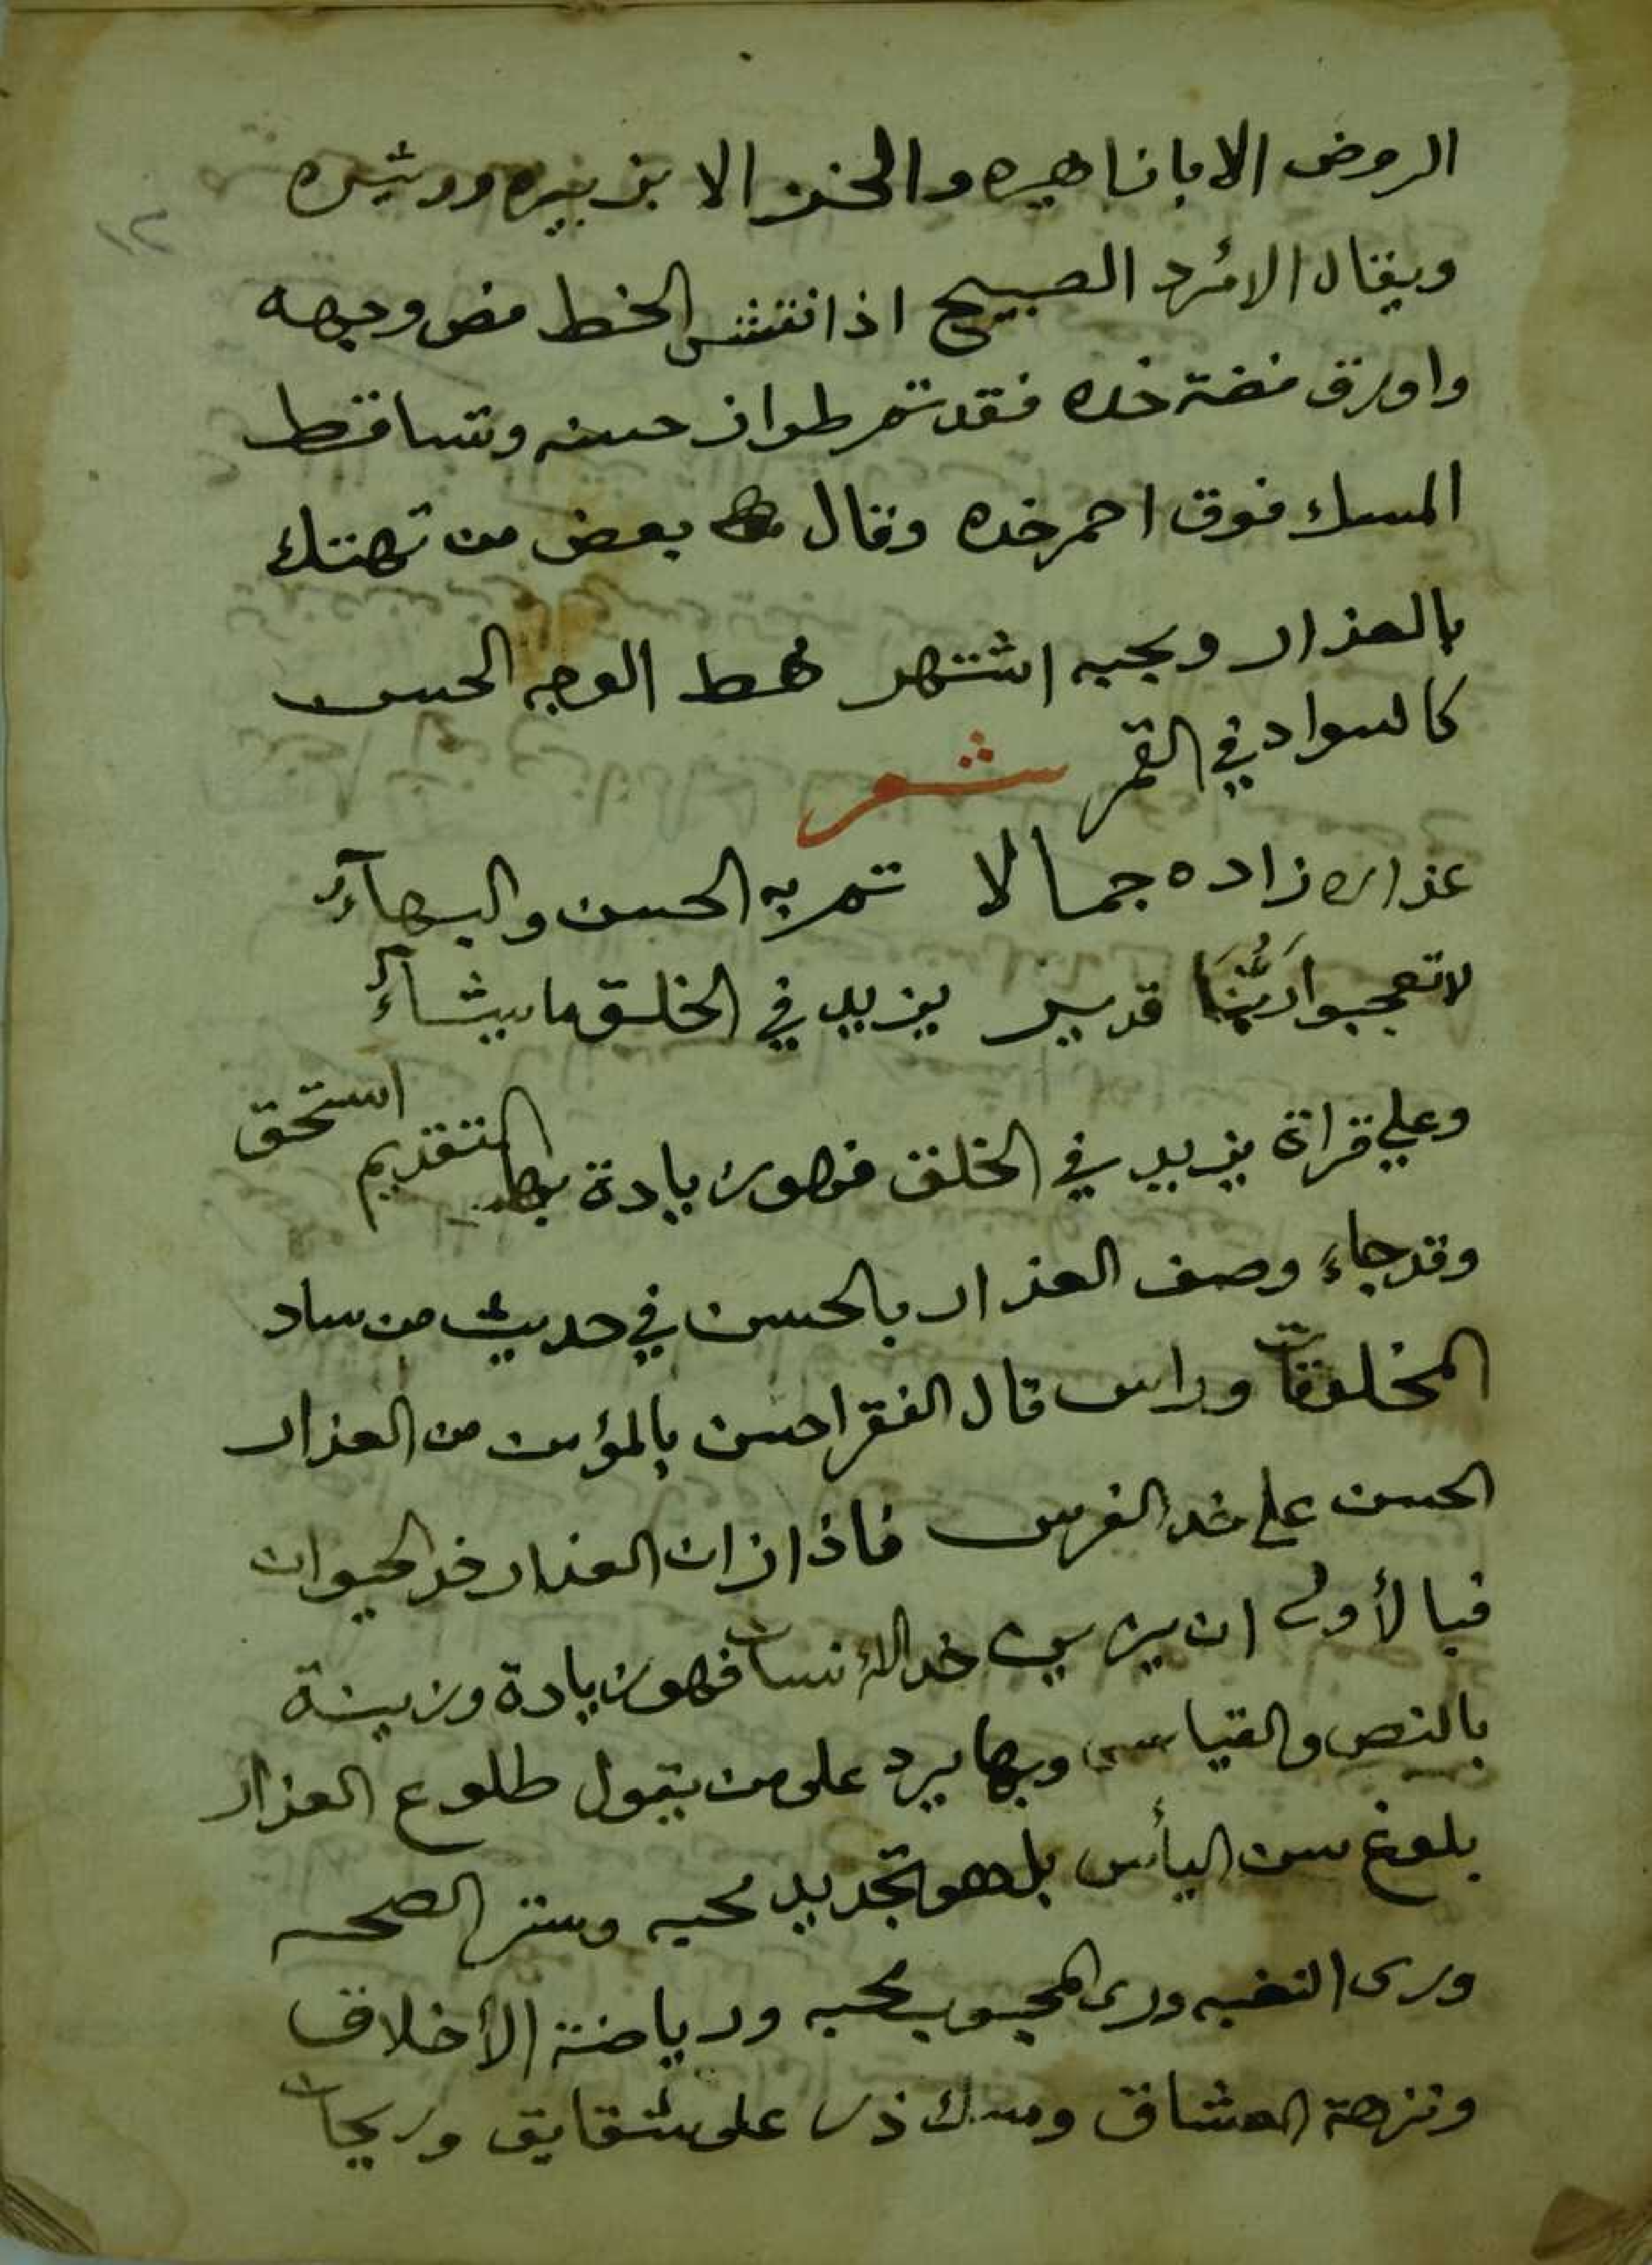 الروض الا بازاهيره والخز الا بزييره ووشيه
ويقال الامرد الصبيح اذا نقش الخط فض وجهه
واورق فضة خده فقد تم طراز حسنه وتساقط
المسك فوق احمر خده وقال بعض من تهتك
بالعذار وبحبه اشتهر خط الوجه الحسن
كالسواد في القمر شعر
عذاره زاده جمالا تم به الحسن والبهآء
لا تعجبوا رَبُّنَا قدير يزيد في الخلق ما يشآء
وعلي قراة يزيد في الخلق فهو زيادة بها التقديم استحق
وقد جاء وصف العذار بالحسن في حديث من ساد
المخلوقات وراس قال الفقر احسن بالمؤمن من العذار
الحسن على خد الفرس فاذا زان العذار خد الحيوان
فبالأولى ان يزين خد الانسان فهو زيادة وزينة
بالنص والقياس وبها يرد على من يقول طلوع العذار
بلوغ سن اليأس بل هو تجديد محبه وستر الصحبه
وري المحبوب بحبه ورياضة الأخلاق
ونزهة العشاق ومسك ذر على شقايق وريحان
١٢